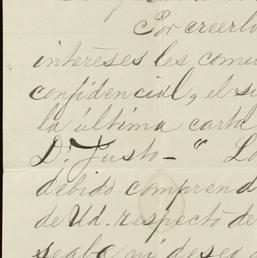 Por creerlo
intereses les comu
confidencial, el si
la última carta
D. Justo – " Lo
debido comprend
de Ud. respecto de